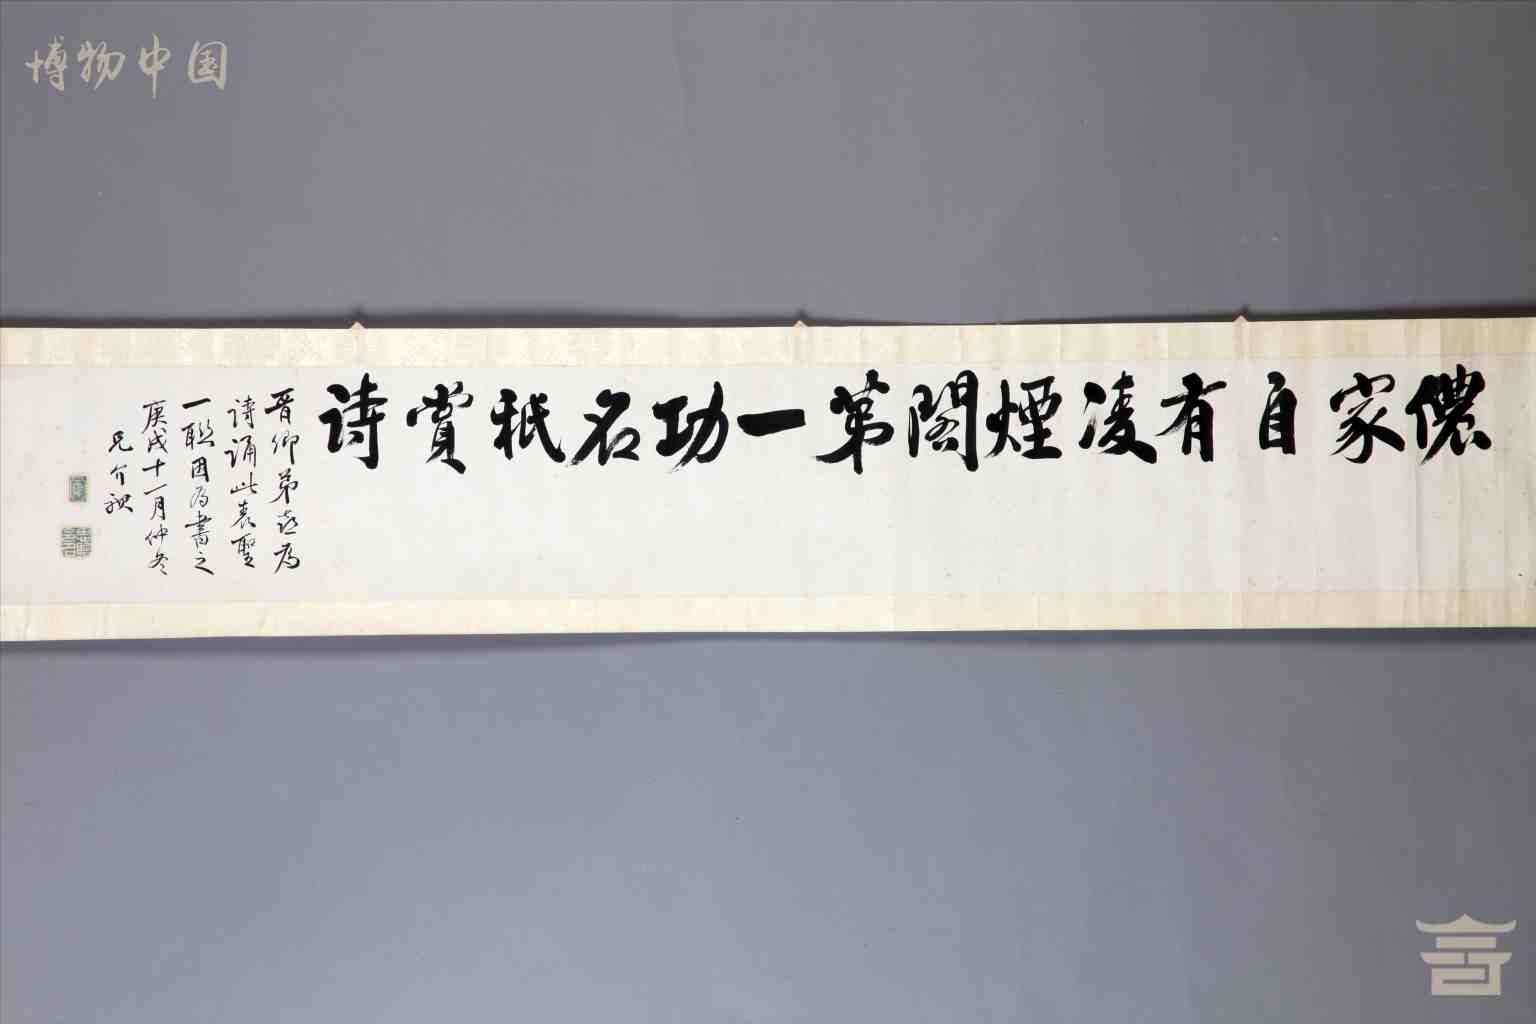 博物中国
儂家自有凌煙閣第一功名秖賞詩
晋卿弟喜為
詩誦此表聖
一聯因為書之
庚戌十一月仲冬
兄介祺